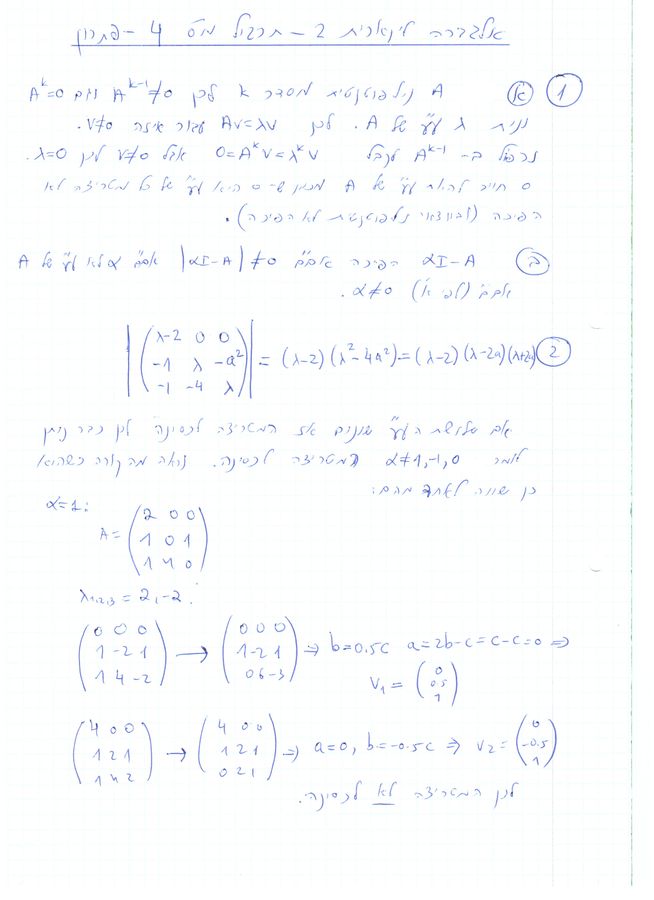 אלגברה לינארית 2 - תרגיל מס 4 - פתרון
1 א A נילפוטנטית מסדר k לכן A^{k-1}≠0 וגם A^k=0
נניח λ ע"ע של A. לכן Av=λv עבור איזה v≠0.
נכפול ב- A^{k-1} לקבל 0=A^k v=λ^k v אבל v≠0 לכן λ=0.
0 חייב להיות ע"ע של A מכיוון ש-0 היא ע"ע של כל מטריצה לא
הפיכה (ובוודאי נילפוטנטית לא הפיכה).
ב αI-A הפיכה אםם |αI-A|≠0 אםם α לא ע"ע של A
אםם (לפי א') α≠0.
2 |(λ-2 0 0; -1 λ -a²; -1 -4 λ)| = (λ-2)(λ²-4a²)=(λ-2)(λ-2a)(λ+2a)
אם שלושת הע"ע שונים אז המטריצה לכסינה לכן כבר ניתן
לומר α≠1,-1,0 המטריצה לכסינה. נראה מה קורה כשהוא
כן שווה לאחד מהם:
α=1:
A= (2 0 0; 1 0 1; 1 4 0)
λ1,2,3 = 2,-2:
(0 0 0; 1 -2 1; 1 4 -2) → (0 0 0; 1 -2 1; 0 6 -3) ⇒ b=0.5c a=2b-c=c-c=0 ⇒
V₁ = (0; 0.5; 1)
(4 0 0; 1 2 1; 1 4 2) → (4 0 0; 1 2 1; 0 2 1) ⇒ a=0, b=-0.5c ⇒ v₂= (0; -0.5; 1)
לכן המטריצה לא לכסינה.